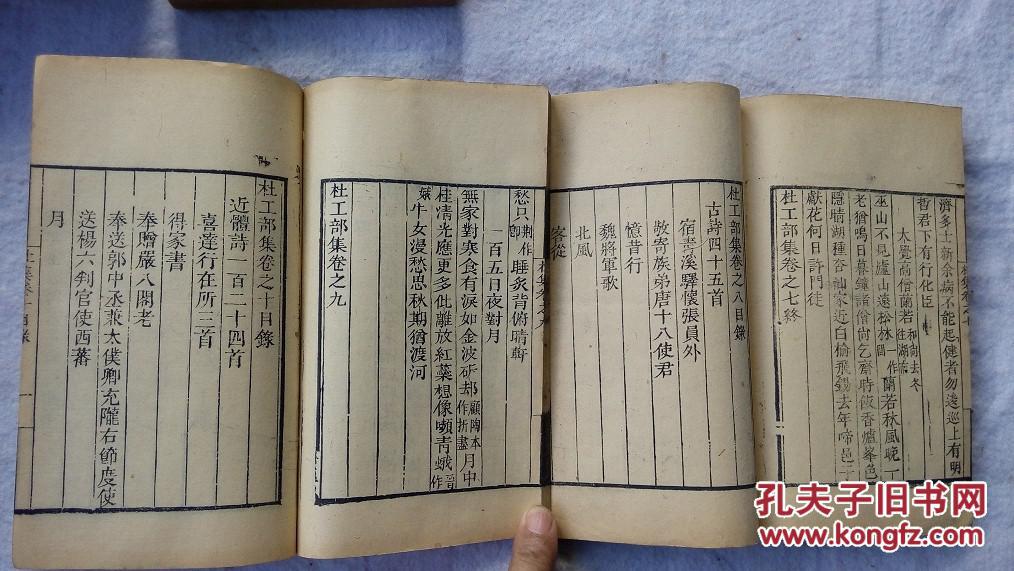 濟多士新余病不能起健者勿逡巡上有明
哲君下有行化臣
大覺高僧蘭若 和尚去冬往湖南
巫山不見廬山遠松林 一作蘭若秋風晚一
老猶鳴日暮鐘諸僧尚乞齋時飯香爐峯色
隱晴湖種杏仙家近白榆飛錫去年啼邑子
獻花何日許門徒
杜工部集卷之七終
杜工部集卷之八目錄
古詩四十五首
宿青溪驛懷張員外
敬寄族弟唐十八使君
憶昔行
魏將軍歌
北風
客從
愁只 睡炙背俯晴軒
一百五日夜對月
無家對寒食有淚如金波斫却 顧陶本作折盡 月中
桂清光應更多仳離放紅蘂想像嚬青蛾 一作
牛女漫愁思秋期猶渡河
杜工部集卷之九
杜工部集卷之十目錄
近體詩一百二十四首
喜達行在所三首
得家書
奉贈嚴八閣老
奉送郭中丞兼太僕卿充隴右節度使
送楊六判官使西蕃
月
一
孔夫子旧书网
www.kongfz.com